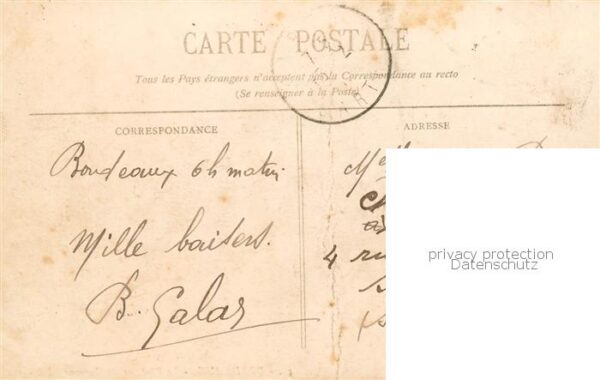 CARTE POSTALE
Tous les Pays étrangers n'acceptent pas la Correspondance au recto
(Se renseigner à la Poste)
CORRESPONDANCE
ADRESSE
Bordeaux 6h matin
Mille baisers.
B. Galas
Melle
4 ru
privacy protection
Datenschutz